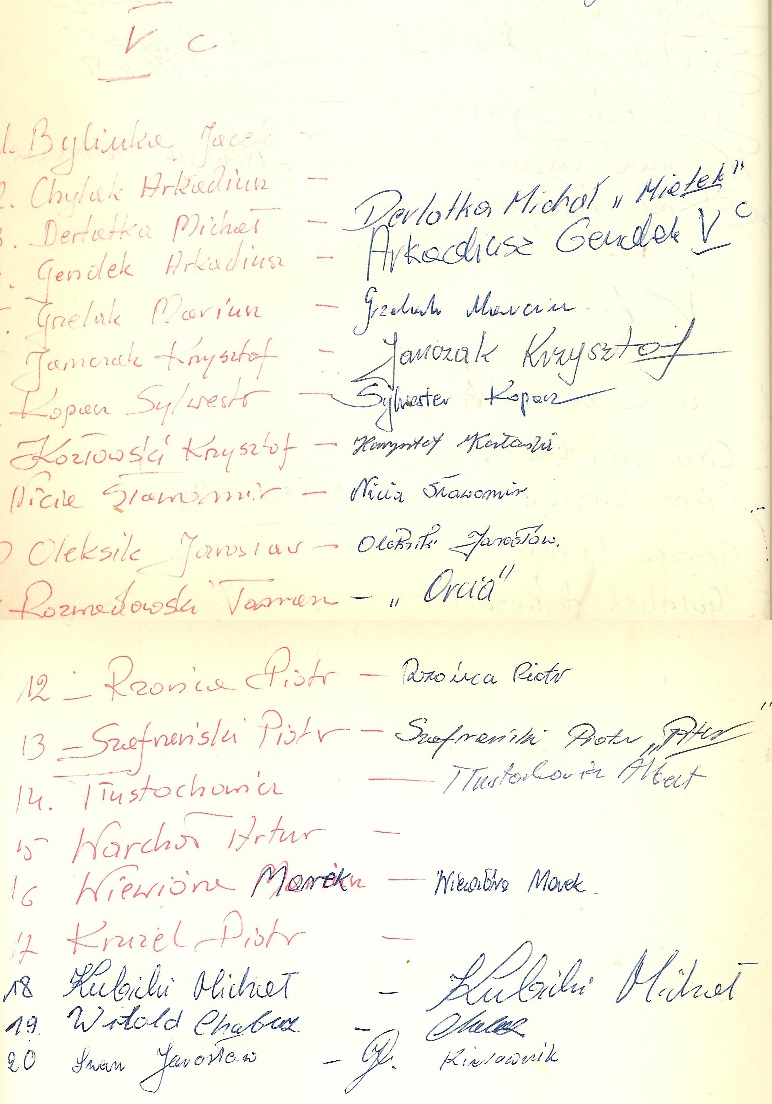 V c
1. Bylinka Jacek —
2. Chylak Arkadiusz —
3. Derlatka Michał — Derlatka Michał „Mietek”
4. Gendek Arkadiusz — Arkadiusz Gendek V c
5. Grzelak Mariusz — Grzelak Marcin
Janczak Krzysztof - Janczak Krzysztof
Kopacz Sylwester — Sylwester Kopacz
Kozłowski Krzysztof — Krzysztof
Nicia Sławomir — Nicia Sławomir
Oleksik Jarosław — Oleksik Jarosław.
Rozmadowski — „Orcia”
12 — Rzońca Piotr — Rzońca Piotr
13 — Szafrański Piotr — Szafrański Piotr
14. Tłustochowicz — Tłustochowicz Albert
15 Warchoł Artur —
16 Wiewióra Marek — Wiewióra Marek.
17 Kruzel Piotr —
18 Kubicki Michał — Kubicki Michał
19. Witold Chabuz —
20 Jarosław — Kierownik